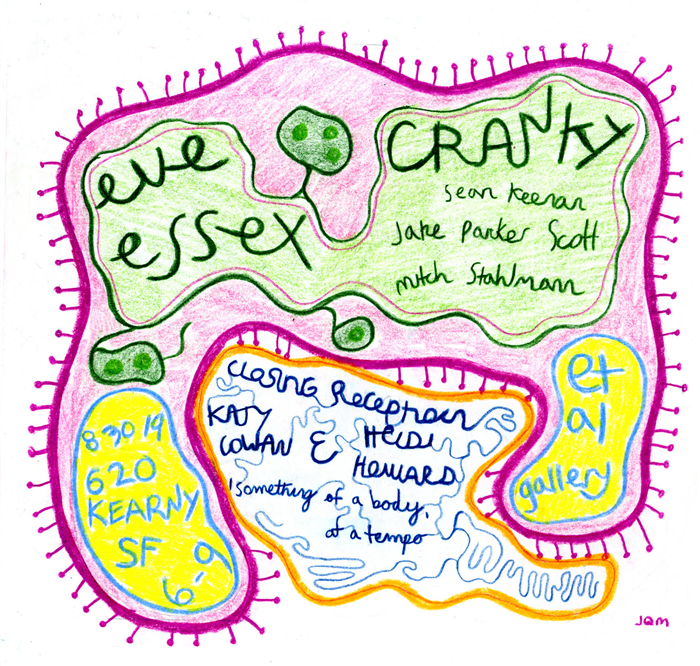 eve
essex
CRANKY
sean keenan
jake parker Scott
mitch Stahlmann
closing Reception
KATY
COWAN & HEIDI
HOWARD
'something of a body,
at a tempo
8·30 19
620
KEARNY
SF
6-9
et
al
gallery
JQM